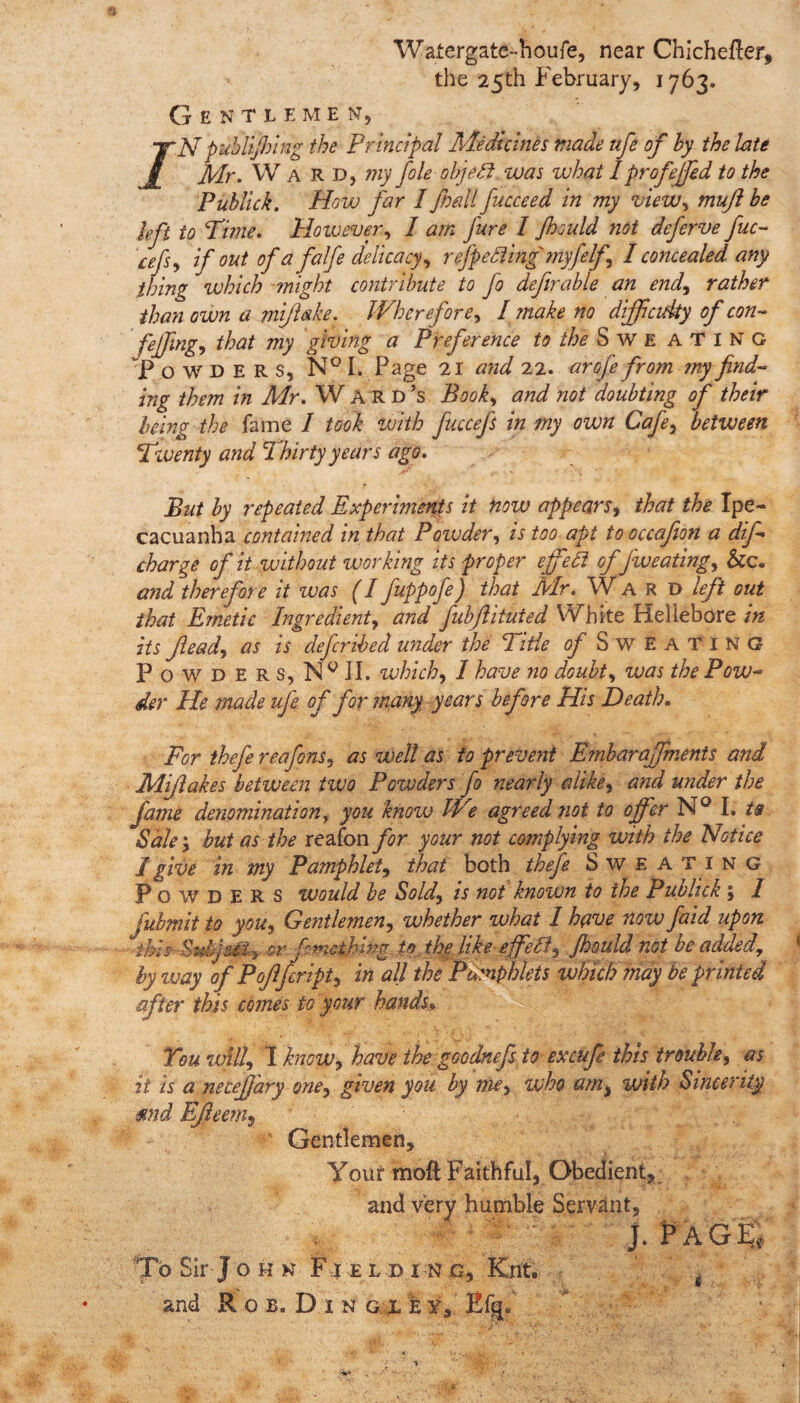 Watergate-houſe, near Chicheſter,
the 25th February, 1763.
GENTLEMEN,
IN publiſhing the Principal Medicines made uſe of by the late
Mr. WARD, my ſole object was what I profeſſed to the
Publick. How far I ſhall ſucceed in my view, muſt be
left to Time. However, I am ſure I ſhould not deſerve ſuc-
ceſs, if out of a falſe delicacy, reſpecting myſelf, I concealed any
thing which might contribute to ſo deſirable an end, rather
than own a miſtake. Wherefore, I make no difficulty of con-
feſſing, that my giving a Preference to the SWEATING
POWDERS, Nº I. Page 21 and 22. aroſe from my find-
ing them in Mr. WARD's Book, and not doubting of their
being the ſame I took with ſucceſs in my own Caſe, between
Twenty and Thirty years ago.
But by repeated Experiments it now appears, that the Ipe-
cacuanha contained in that Powder, is too apt to occaſion a diſ-
charge of it without working its proper effect of ſweating, &c.
and therefore it was (I ſuppoſe) that Mr. WARD left out
that Emetic Ingredient, and ſubſtituted White Hellebore in
its ſtead, as is deſcribed under the Title of SWEATING
POWDERS, Nº II. which, I have no doubt, was the Pow-
der He made uſe of for many years before His Death.
For theſe reaſons, as well as to prevent Embaraſſments and
Miſtakes between two Powders ſo nearly alike, and under the
ſame denomination, you know We agreed not to offer Nº I. to
Sale; but as the reaſon for your not complying with the Notice
I give in my Pamphlet, that both theſe SWEATING
POWDERS would be Sold, is not known to the Publick; I
ſubmit to you, Gentlemen, whether what I have now ſaid upon
this Subject, or ſomething to the like effect, ſhould not be added,
by way of Poſtſcript, in all the Pamphlets which may be printed
after this comes to your hands.
You will, I know, have the goodneſs to excuſe this trouble, as
it is a neceſſary one, given you by me, who am, with Sincerity
and Eſteem,
Gentlemen,
Your moſt Faithful, Obedient,
and very humble Servant,
J. PAGE,
To Sir JOHN FIELDING, Knt.
and ROB. DINGLEY, Eſq.